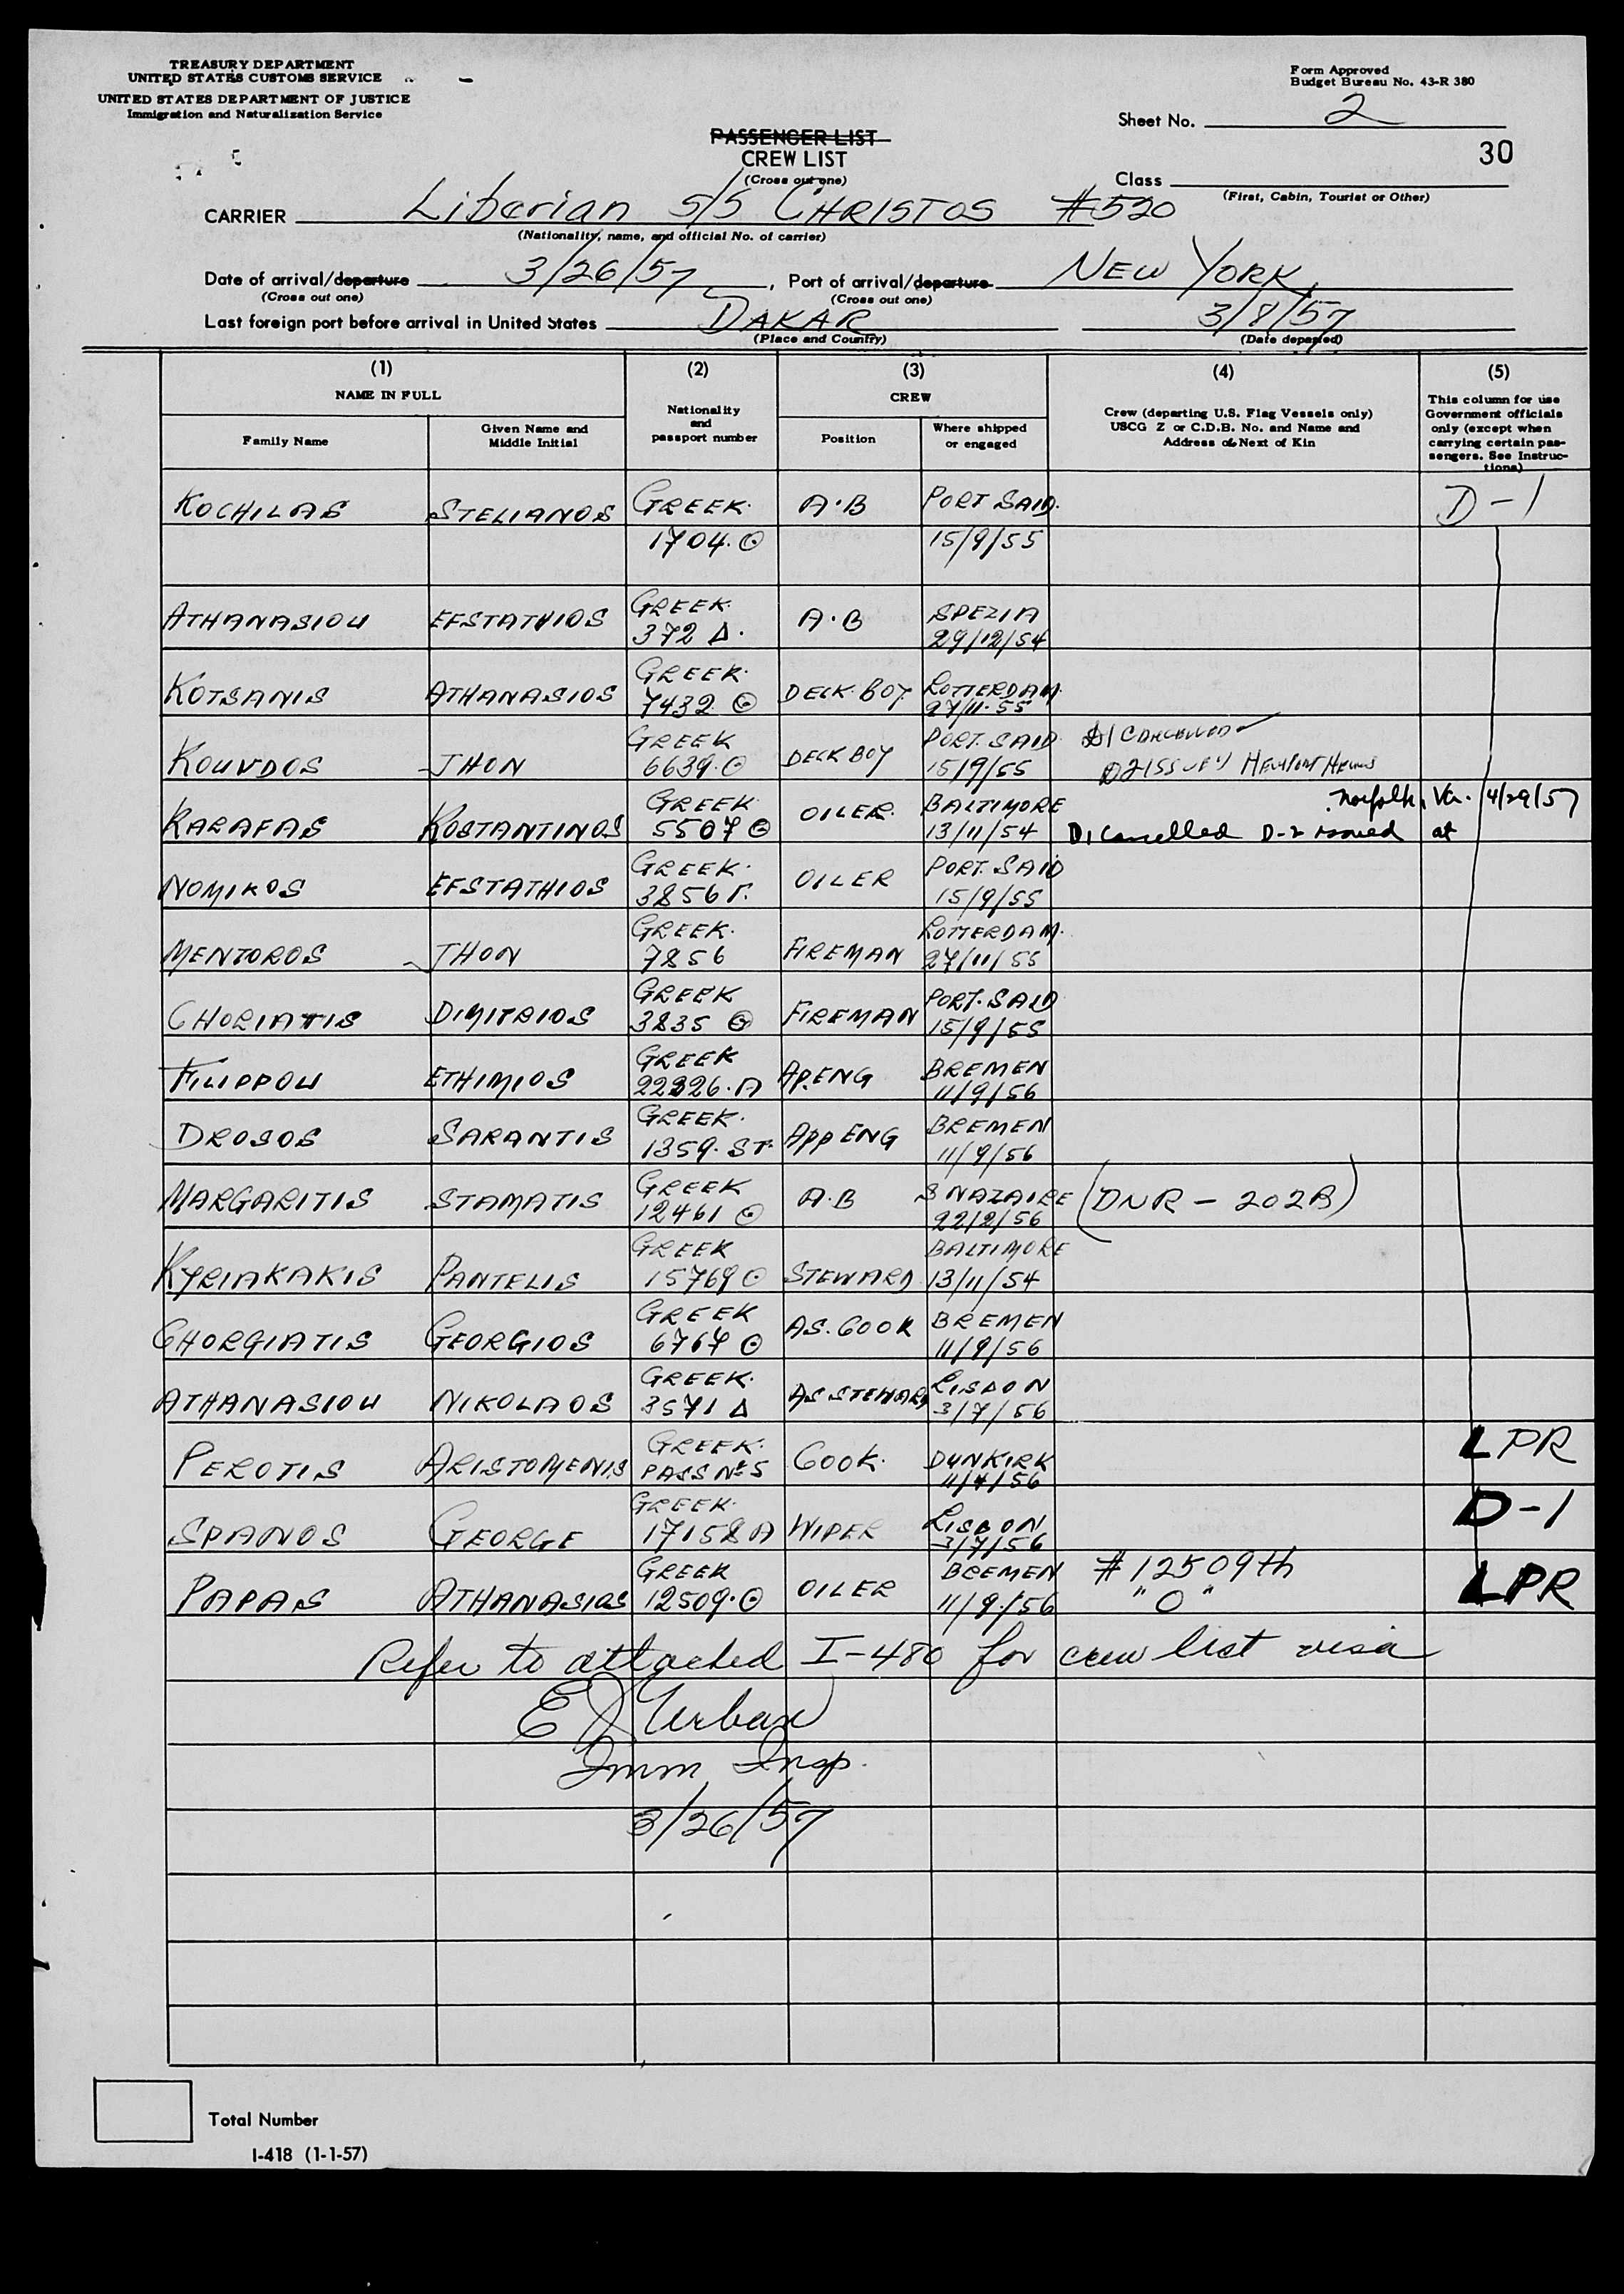 TREASURY DEPARTMENT
UNITED STATES CUSTOMS SERVICE
UNITED STATES DEPARTMENT OF JUSTICE
Immigration and Naturalization Service
Form Approved
Budget Bureau No. 43-R 380
Sheet No. 2
30
PASSENGER LIST
CREW LIST
(Cross out one)
Class
(First, Cabin, Tourist or Other)
CARRIER Liberian S/S CHRISTOS #520
(Nationality, name, and official No. of carrier)
Date of arrival/departure 3/26/57, Port of arrival/departure NEW YORK
(Cross out one) (Cross out one)
Last foreign port before arrival in United States DAKAR 3/8/57
(Place and Country) (Date departed)
(1) NAME IN FULL
Family Name
Given Name and Middle Initial
(2) Nationality and passport number
(3) CREW
Position
Where shipped or engaged
(4) Crew (departing U.S. Flag Vessels only) USCG Z or C.D.B. No. and Name and Address of Next of Kin
(5) This column for use Government officials only (except when carrying certain passengers. See Instructions)
KOCHILAS STELIANOS GREEK. A.B PORT SAID. D-1
1704. Θ 15/9/55
ATHANASIOU EFSTATHIOS GREEK. 372 Δ. A.B SPEZIA 29/12/54
KOTSANIS ATHANASIOS GREEK. 7432 Θ DECK.BOY. ROTTERDAM. 27/11.55
KOUVDOS JHON GREEK 6639.Θ DECK BOY PORT.SAID 15/9/55 D1 CANCELLED
D2 ISSUED NEWPORT NEWS
KARAFAS KOSTANTINOS GREEK 5507 Θ OILER. BALTIMORE 13/11/54 Norfolk, Va. 4/29/57
D1 Cancelled D-2 issued at
NOMIKOS EFSTATHIOS GREEK. 3856 Γ. OILER PORT.SAID 15/9/55
MENTOROS JHON GREEK. 7856 FIREMAN ROTTERDAM. 27/11/55
CHORIATIS DIMITRIOS GREEK 3835 Θ FIREMAN PORT.SAID 15/9/55
FILIPPOU ETHIMIOS GREEK 22326.A AP.ENG BREMEN 11/9/56
DROSOS SARANTIS GREEK. 1359.ST. APP ENG BREMEN 11/9/56
MARGARITIS STAMATIS GREEK 12461 Θ A.B S NAZAIRE 22/2/56 (DNR - 202B)
KYRIAKAKIS PANTELIS GREEK 15769 Θ STEWARD BALTIMORE 13/11/54
CHORGIATIS GEORGIOS GREEK 6767 Θ AS.COOK BREMEN 11/9/56
ATHANASIOU NIKOLAOS GREEK. 3571 Δ AS STEWARD LISBON 3/7/56
PEROTIS ARISTOMENIS GREEK. PASS Nº 5 COOK. DUNKIRK 11/4/56 LPR
SPANOS GEORGE GREEK. 17158 A WIPER LISBON 3/7/56 D-1
PAPAS ATHANASIOS GREEK 12509.Θ OILER BREMEN 11/9/56 #12509th LPR
"O"
Refer to attached I-480 for crew list visa
E J Urban
Imm Insp.
3/26/57
Total Number
I-418 (1-1-57)